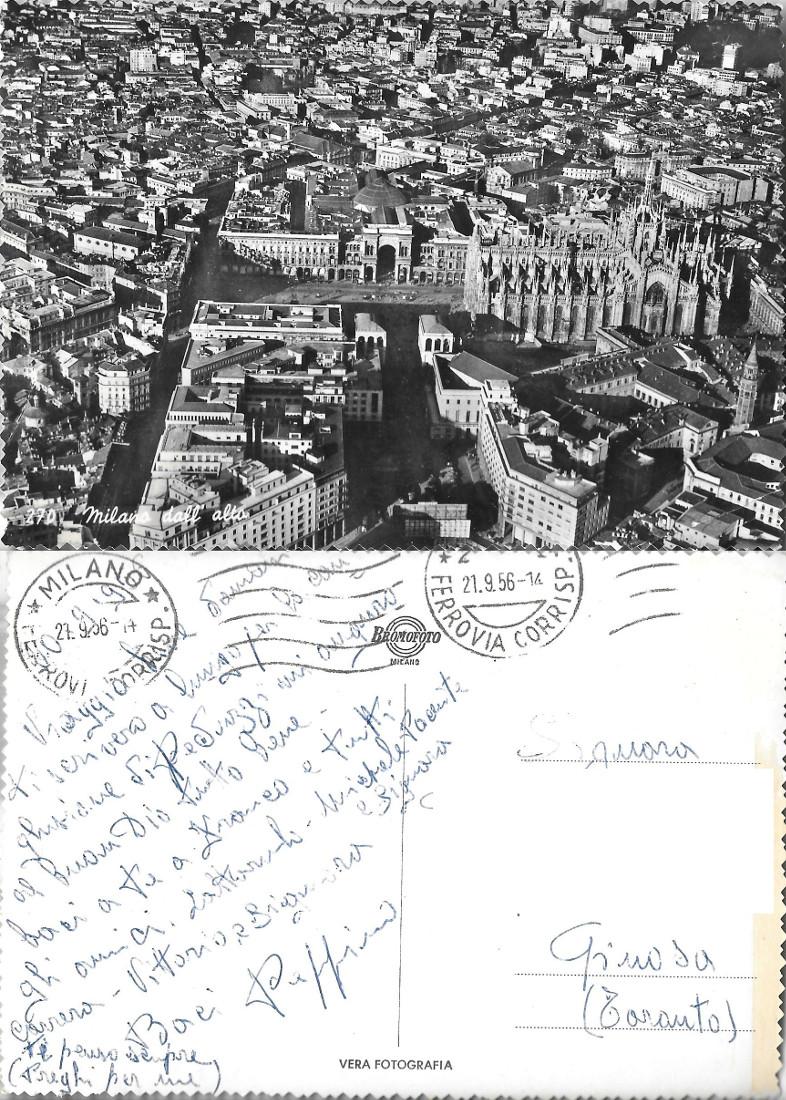 270 Milano dall' alto
★ MILANO ★
21.9.56-14
FERROVI CORRISP.
21.9.56-14
FERROVIA CORRISP.
BROMOFOTO
MILANO
Viaggio
ti scriverò a lungo
al Buon Dio tutto bene -
baci a te a Franco e tutti
gli amici, Michele Pacente
e Signora
Carrera - Vittorio e Signora
Baci Peppino
Te penso sempre
(Preghi per me)
Signora
Ginosa
(Taranto)
VERA FOTOGRAFIA